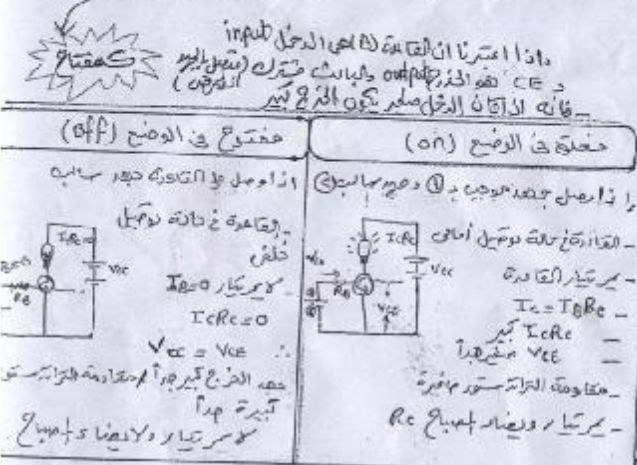 كمفتاح
واذا اعتبرنا ان القاعدة (B) هى الدخل input
و CE هو الخرج output والباعث مشترك
فانه اذا كان الدخل صغير يكون الخرج كبير
مغلق فى الوضع (on)
اذا وصل جهد موجب
- القاعدة فى حالة توصيل أمامى
- يمر تيار القاعدة
- Ic = IB Bc
- IcRc كبير
- VCE صغير جداً
- مقاومة الترانزستور صغيرة
- يمر تيار ويضاء المصباح Rc
IcRc
Vcc
RB
VCE
مفتوح فى الوضع (off)
اذا وصل القاعدة جهد سالب
- القاعدة فى حالة توصيل
خلفى
- لا يمر تيار IB=0
IcRc=0
∴ Vcc = VCE
جهد الخرج كبير جداً مقاومة الترانزستور
كبيرة جداً
لا يمر تيار ولا يضاء المصباح
Vcc
RB